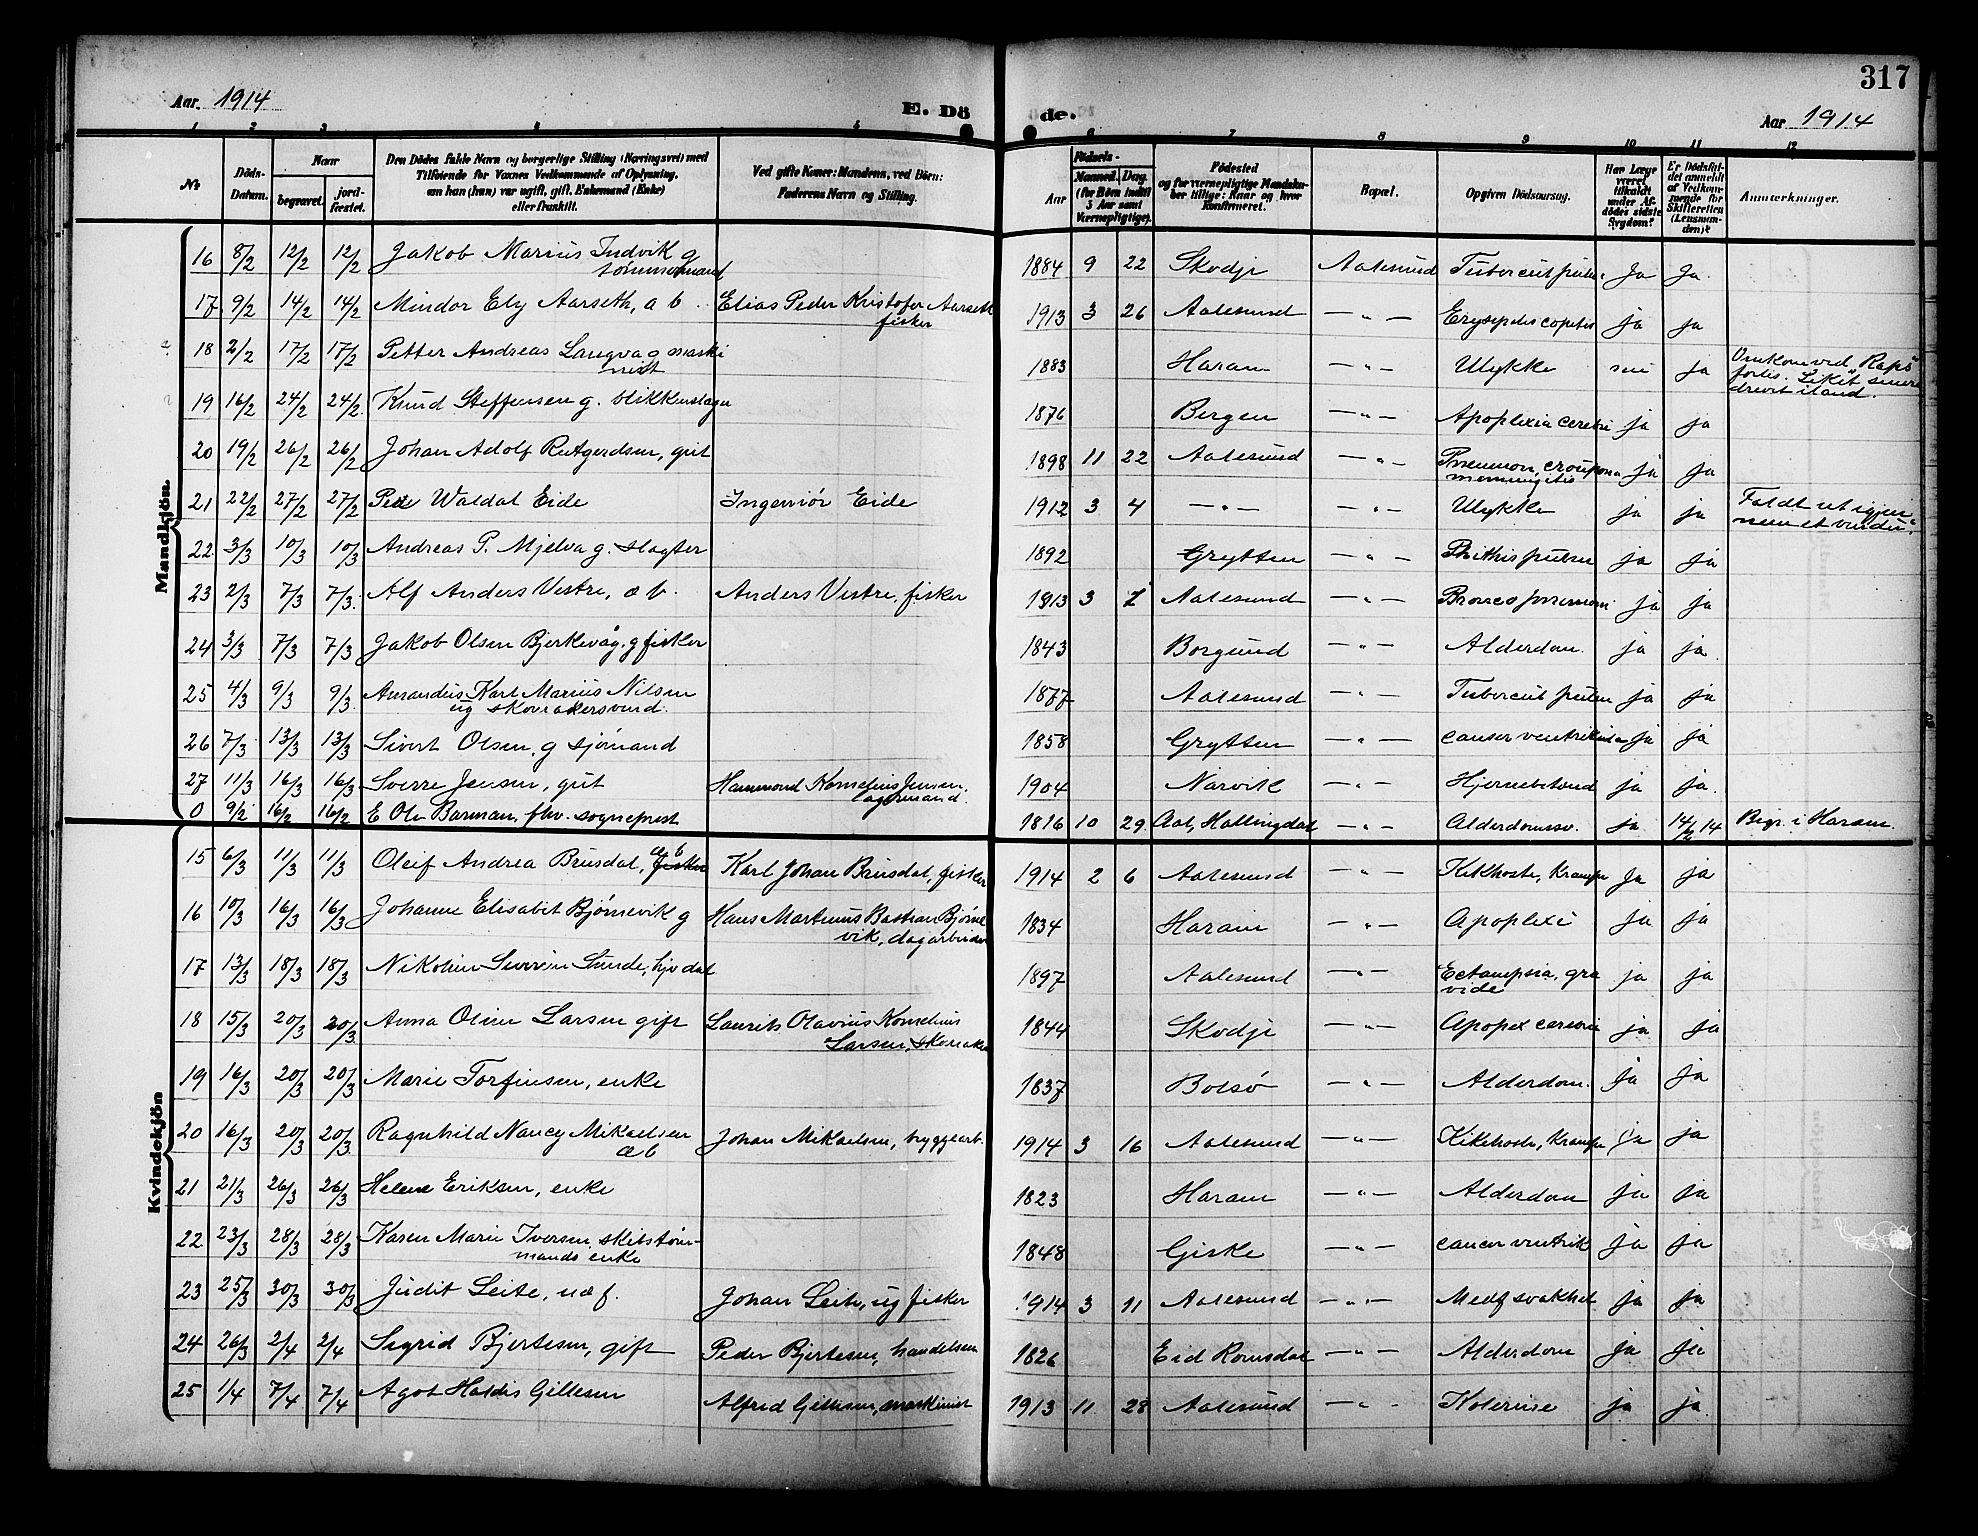 317
Aar. 1914
E. Dö
de.
Aar 1914
1 2 3 4 5
6 7 8 9 10 11 12
No
Döds-Datum.
Naar
begravet.
jord-fæstet.
Den Dödes fulde Navn og borgerlige Stilling (Næringsvei) med
Tilföiende for Voxnes Vedkommende af Oplysning,
om han (hun) var ugift, gift, Enkemand (Enke)
eller fraskilt.
Ved gifte Koner: Mandens, ved Börn:
Faderens Navn og Stilling.
Födsels-
Aar
Maaned. Dag.
(for Börn indtil
5 Aar samt
Værnepligtige).
Födested
og for værnepligtige Mandska-
ber tillige: Naar og hvor
Konfirmeret.
Bopæl.
Opgiven Dödsaarsag.
Har Læge
været
tilkaldt
under Af-
dödes sidste
Sygdom?
Er Dödsfal-
det anmeldt
af Vedkom-
mende for
Skifteretten
(Lensman-
den)?
Anmærkninger.
Mandkjön.
16 8/2 12/2 12/2 Jakob Marius Indvik g
tömmermand
1884 9 22 Skodje Aalesund Tubercul pulm. Ja Ja
17 9/2 14/2 14/2 Mindor Ely Aarseth, a b Elias Peder Kristofer Aarseth
fisker
1913 3 26 Aalesund —"— Erysipelas capitis ja ja
18 2/2 17/2 17/2 Petter Andreas Langva g maski
nist
1883 Haram —"— Ulykke nei ja Omkom ved "Raps
fortis. Liket senere
drevet iland.
19 16/2 24/2 24/2 Knud Steffensen g. blikkenslager
1876 Bergen —"— Apoplexia cerebri ja ja
20 19/2 26/2 26/2 Johan Adolf Rutgerdsen, gut
1898 11 22 Aalesund —"— Pneumon, croupøs ja ja
meningitis
21 22/2 27/2 27/2 Per Waldal Eide Ingeniör Eide
1912 3 4 —"— —"— Ulykke ja ja Faldt ut igjen-
nem et vindu.
22 3/3 10/3 10/3 Andreas P. Mjelva g. slagter
1892 Grytten —"— Phithis pulm ja ja
23 2/3 7/3 7/3 Alf Anders Vestre, a b. Anders Vestre, fisker
1913 3 7 Aalesund —"— Bronco pneumoni ja ja
24 3/3 7/3 7/3 Jakob Olsen Bjerkevåg, g fisker
1843 Borgund —"— Alderdom. ja ja
25 4/3 9/3 9/3 Amandus Karl Marius Nilsen
ug skomakersvend.
1877 Aalesund —"— Tubercul pulm ja ja
26 7/3 13/3 13/3 Sivert Olsen, g sjömand
1858 Grytten —"— cancer ventrikuli ja ja
27 11/3 16/3 16/3 Sverre Jensen, gut Hammond Kornelius Jensen,
lagermand.
1904 Narvik —"— Hjernebetænd ja ja.
0 9/2 16/2 16/2 E Ole Barman, fhv. sogneprest
1816 10 29 Aal, Hallingdal —"— Alderdomssv. ja 14/2 14 Begr. i Haram.
Kvindekjön
15 6/3 11/3 11/3 Oleif Andrea Brusdal, a b fisker Karl Johan Brusdal, fisker
1914 2 6 Aalesund —"— Kikhoste, Krampe Ja ja
16 10/3 16/3 16/3 Johanne Elisabet Bjørnevik g Hans Martinus Bastian Bjørne
vik, dagarbeider
1834 Haram —"— Apoplexi ja ja
17 13/3 18/3 18/3 Nikoline Severin Sunde, hjv dat
1897 Aalesund —"— Eclampsia, gra ja ja
vide
18 15/3 20/3 20/3 Anna Oline Larsen gift Laurits Olavius Kornelius
Larsen, skomaker
1844 Skodje —"— Apopex cerebri ja ja
19 16/3 20/3 20/3 Marie Torfinsen, enke
1837 Bolsö —"— Alderdom. ja ja
20 16/3 20/3 20/3 Ragnhild Nancy Mikaelsen Johan Mikaelsen, bryggearb.
a b
1914 3 16 Aalesund —"— Kikehoste, Krampe ja ja
21 21/3 26/3 26/3 Helene Eriksen, enke
1823 Haram —"— Alderdom ja ja
22 23/3 28/3 28/3 Karen Marie Iversen skibstöm-
mands enke
1848 Giske —"— cancer ventrik ja ja
23 25/3 30/3 30/3 Judit Leite, u æ f. Johan Leite, ug fisker
1914 3 11 Aalesund —"— Medf svakhet ja ja
24 26/3 2/4 2/4 Sigrid Bjertesen, gift Peder Bjertesen, handelsm
1826 Eid Romsdal —"— Alderdom ja ja
25 1/4 7/4 7/4 Agot Haldis Gillesen Alfred Gillesen, maskinist
1913 11 28 Aalesund —"— Kolerine ja ja